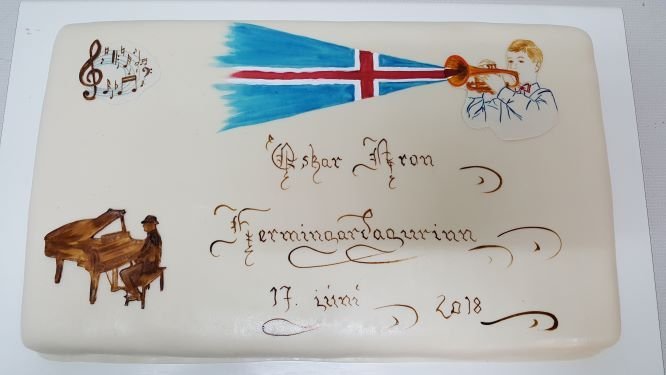 Óskar Aron
Fermingardagurinn
17. júní 2018